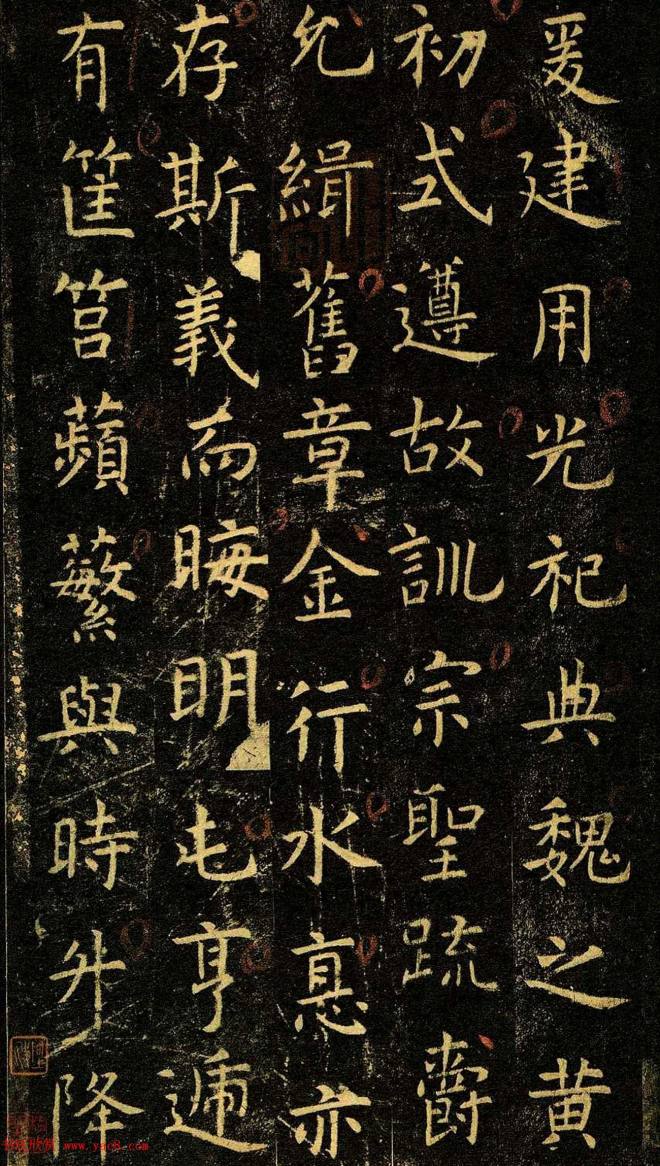 爰建用光祀典魏之黄
初式遵故訓宗聖疏爵
允緝舊章金行水悳亦
存斯義而晦眀屯亨遞
有筐筥蘋蘩與時升降
www.yac8.com